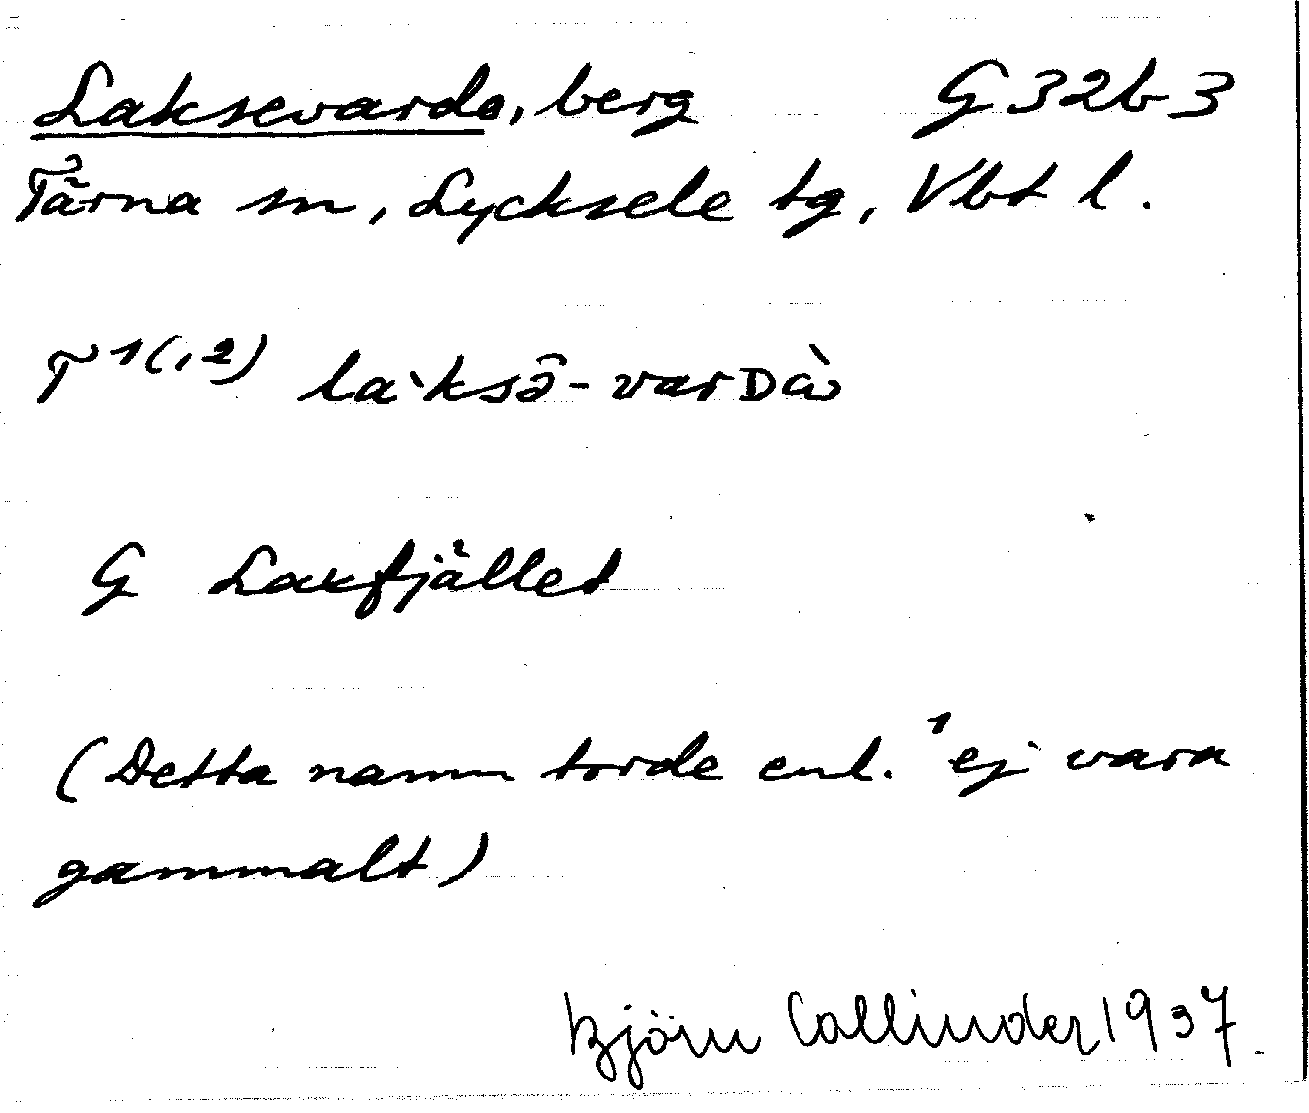 Laksevardo, berg G 32b 3
Tärna sn, Lycksele tg, Vbt l.
T 1(,2) la`ksə̑-varᴅå̀
G Laxfjället
(Detta namn torde enl. 1 ej vara
gammalt)
Björn Collinder 1937